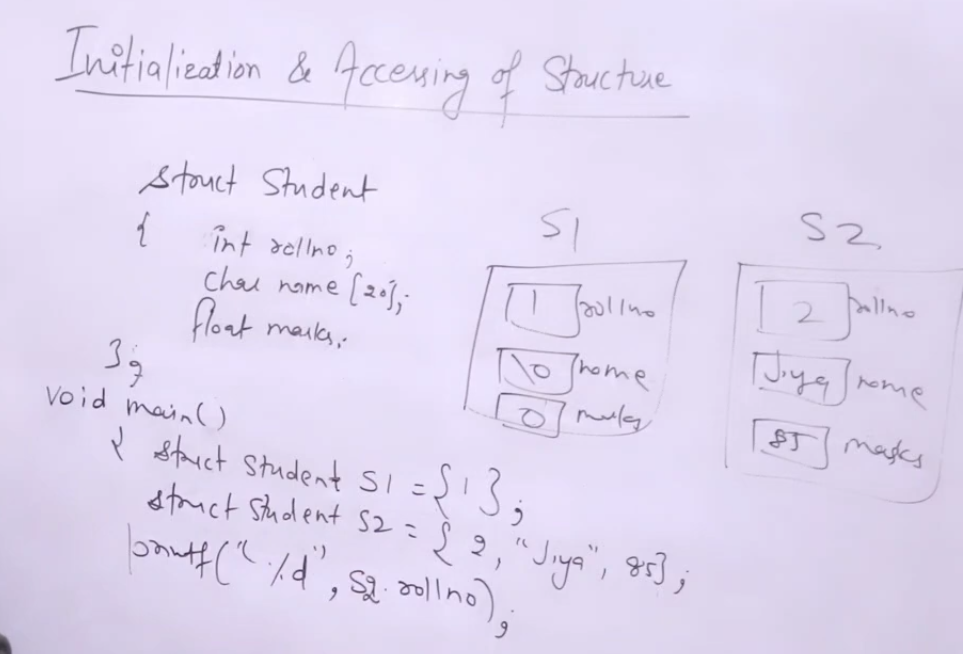 Initialization & Accessing of Structure
struct Student
{ int rollno;
char name [20];
float marks;
};
void main()
{ struct Student S1 = {1};
struct Student S2 = { 2, "Jiya", 85};
printf("%d", S2.rollno);
S1
1 rollno
\0 name
0 marks
S2
2 rollno
Jiya name
85 marks